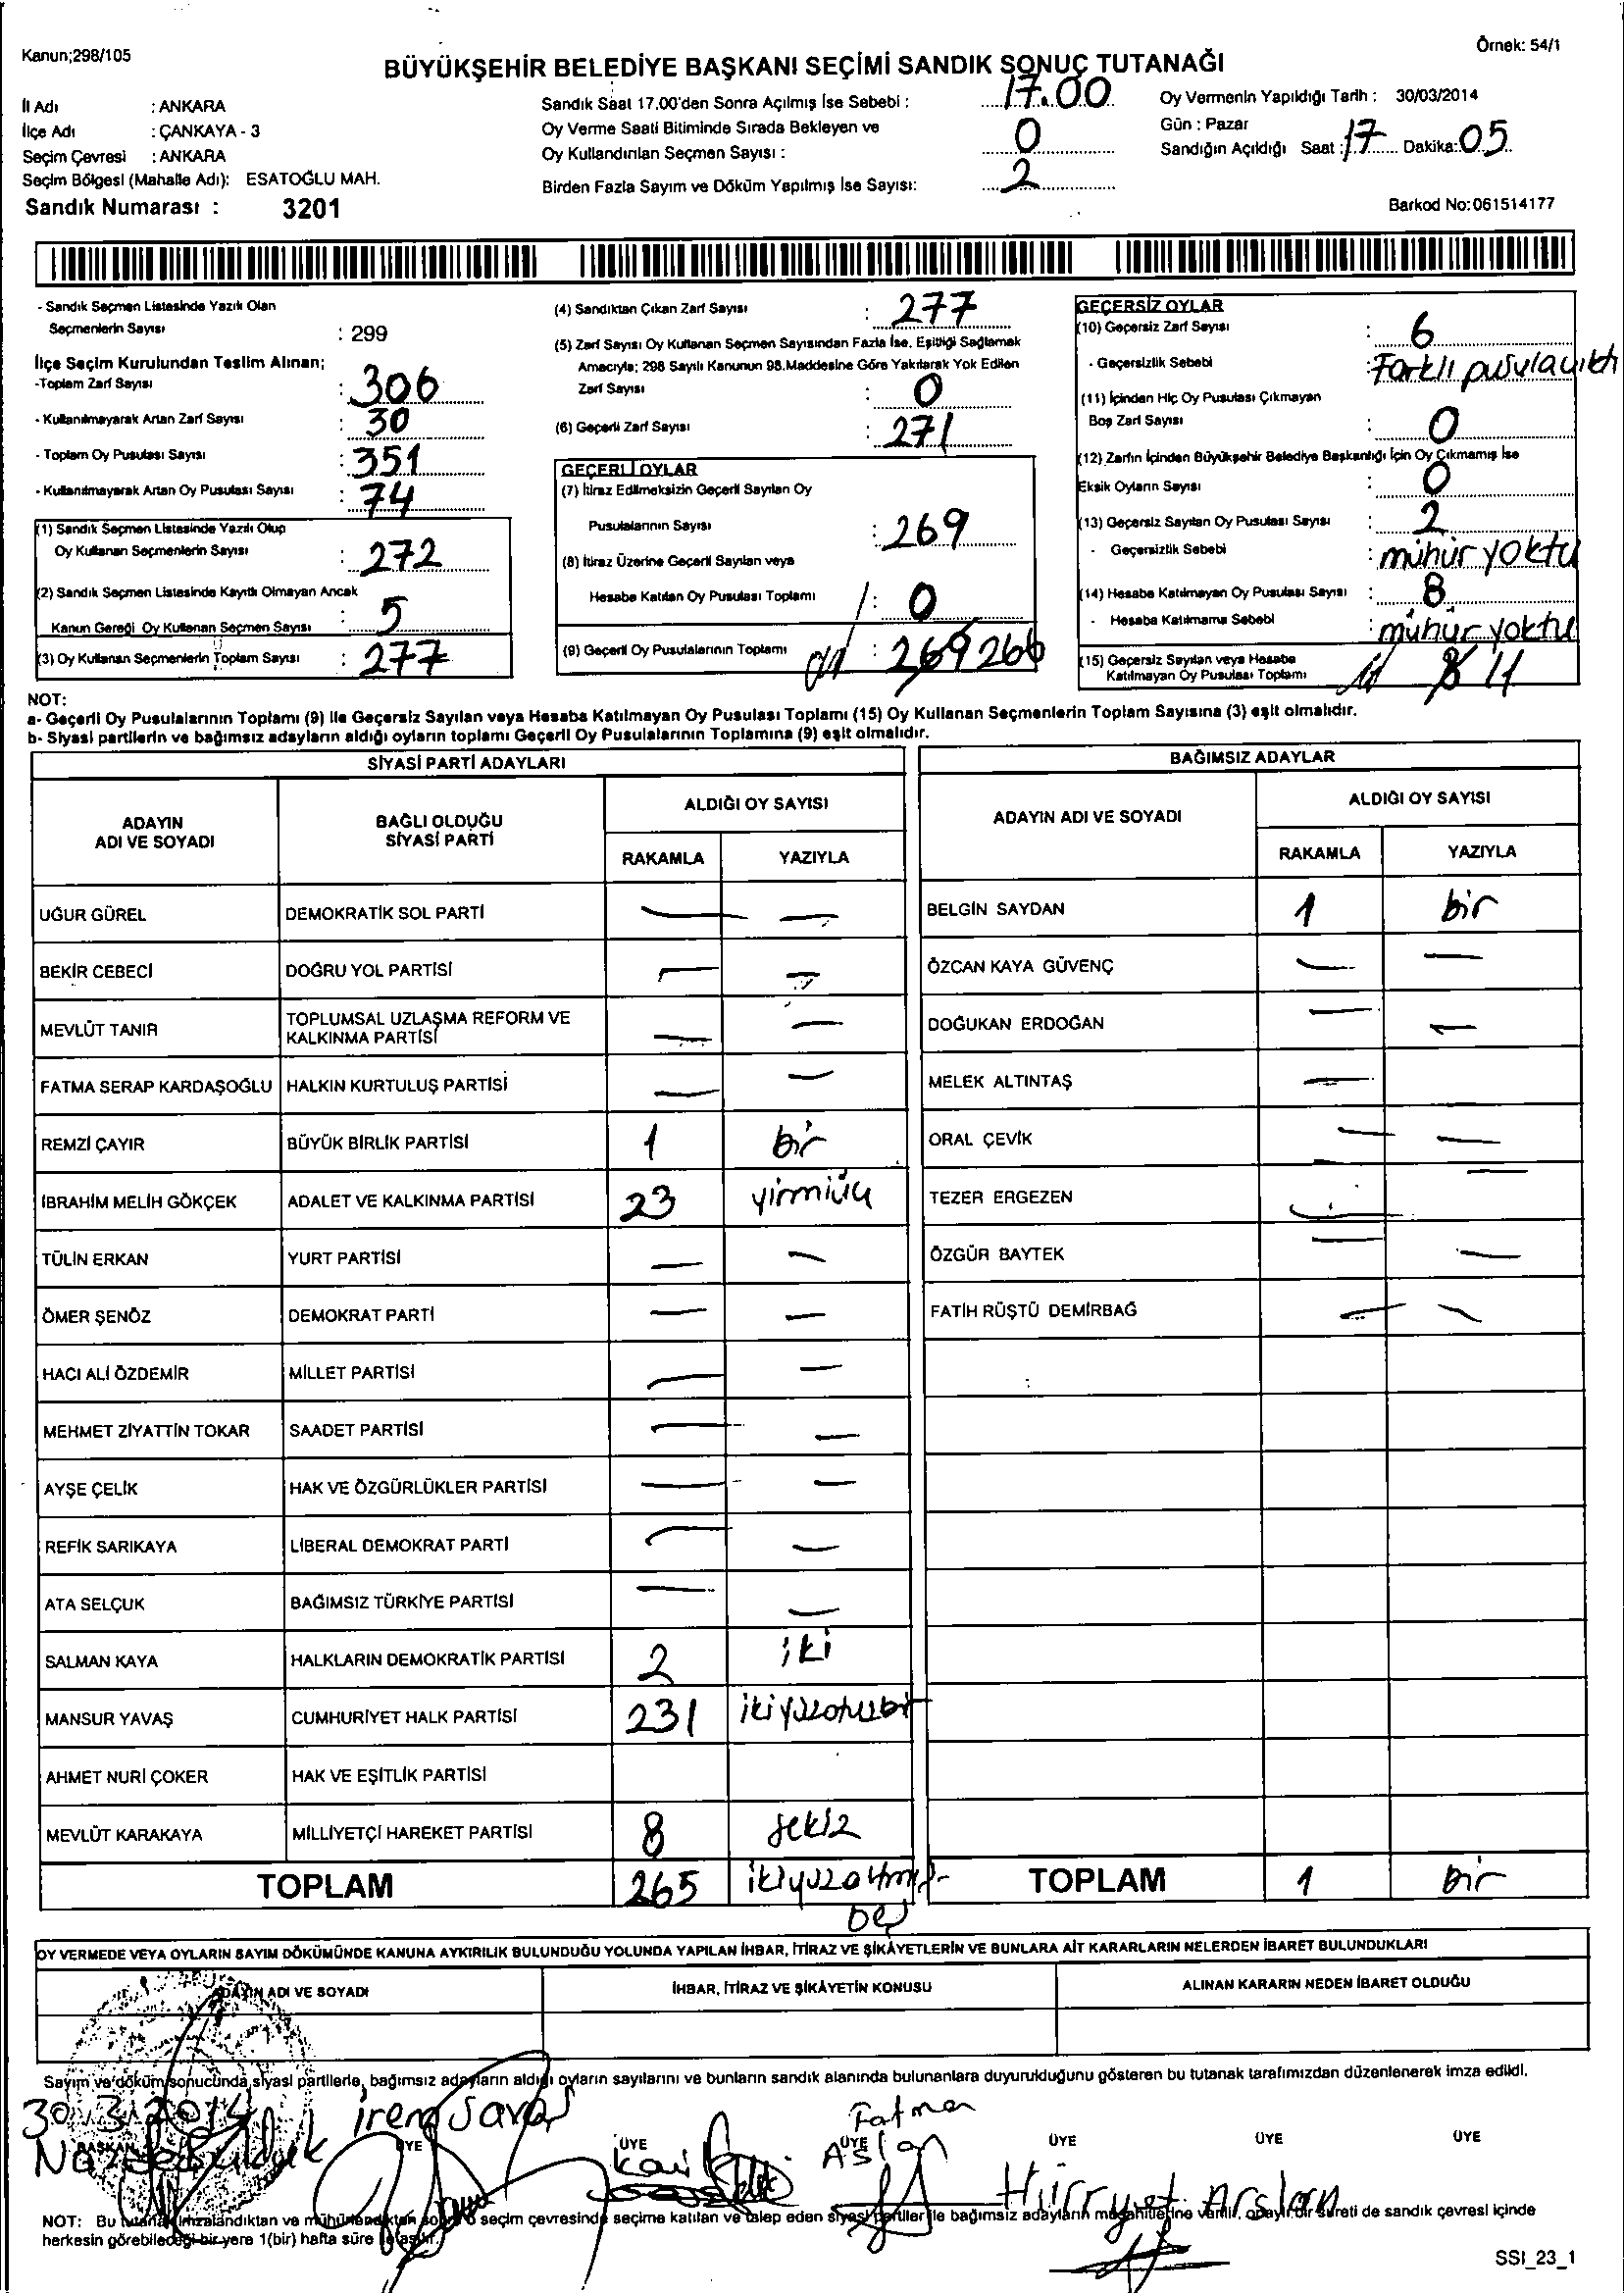 Kanun;298/105
Örnek: 54/1
BÜYÜKŞEHİR BELEDİYE BAŞKANI SEÇİMİ SANDIK SONUÇ TUTANAĞI
İl Adı : ANKARA
İlçe Adı : ÇANKAYA - 3
Seçim Çevresi : ANKARA
Seçim Bölgesi (Mahalle Adı): ESATOĞLU MAH.
Sandık Numarası : 3201
Sandık Saat 17.00'den Sonra Açılmış İse Sebebi : 17.00
Oy Verme Saati Bitiminde Sırada Bekleyen ve
Oy Kullandırılan Seçmen Sayısı : 0
Birden Fazla Sayım ve Döküm Yapılmış İse Sayısı: 2
Oy Vermenin Yapıldığı Tarih : 30/03/2014
Gün : Pazar
Sandığın Açıldığı Saat : 17 Dakika: 05
Barkod No:061514177
- Sandık Seçmen Listesinde Yazılı Olan
Seçmenlerin Sayısı : 299
İlçe Seçim Kurulundan Teslim Alınan;
-Toplam Zarf Sayısı : 306
- Kullanılmayarak Artan Zarf Sayısı : 30
- Toplam Oy Pusulası Sayısı : 351
- Kullanılmayarak Artan Oy Pusulası Sayısı : 74
(1) Sandık Seçmen Listesinde Yazılı Olup
Oy Kullanan Seçmenlerin Sayısı : 272
(2) Sandık Seçmen Listesinde Kayıtlı Olmayan Ancak
Kanun Gereği Oy Kullanan Seçmen Sayısı : 5
(3) Oy Kullanan Seçmenlerin Toplam Sayısı : 277
(4) Sandıktan Çıkan Zarf Sayısı : 277
(5) Zarf Sayısı Oy Kullanan Seçmen Sayısından Fazla İse, Eşitliği Sağlamak
Amacıyla; 298 Sayılı Kanunun 98.Maddesine Göre Yakılarak Yok Edilen
Zarf Sayısı : 0
(6) Geçerli Zarf Sayısı : 271
GEÇERLİ OYLAR
(7) İtiraz Edilmeksizin Geçerli Sayılan Oy
Pusulalarının Sayısı : 269
(8) İtiraz Üzerine Geçerli Sayılan veya
Hesaba Katılan Oy Pusulası Toplamı : 0
(9) Geçerli Oy Pusulalarının Toplamı : 269 266
GEÇERSİZ OYLAR
(10) Geçersiz Zarf Sayısı : 6
- Geçersizlik Sebebi : Farklı pusula çıktı
(11) İçinden Hiç Oy Pusulası Çıkmayan
Boş Zarf Sayısı : 0
(12) Zarfın İçinden Büyükşehir Belediye Başkanlığı İçin Oy Çıkmamış İse
Eksik Oyların Sayısı : 0
(13) Geçersiz Sayılan Oy Pusulası Sayısı : 2
- Geçersizlik Sebebi : mühür yoktu
(14) Hesaba Katılmayan Oy Pusulası Sayısı : 8
- Hesaba Katılmama Sebebi : mühür yoktu
(15) Geçersiz Sayılan veya Hesaba
Katılmayan Oy Pusulası Toplamı 8 11
NOT:
a- Geçerli Oy Pusulalarının Toplamı (9) ile Geçersiz Sayılan veya Hesaba Katılmayan Oy Pusulası Toplamı (15) Oy Kullanan Seçmenlerin Toplam Sayısına (3) eşit olmalıdır.
b- Siyasi partilerin ve bağımsız adayların aldığı oyların toplamı Geçerli Oy Pusulalarının Toplamına (9) eşit olmalıdır.
SİYASİ PARTİ ADAYLARI
ADAYIN ADI VE SOYADI
BAĞLI OLDUĞU SİYASİ PARTİ
ALDIĞI OY SAYISI
RAKAMLA YAZIYLA
UĞUR GÜREL DEMOKRATİK SOL PARTİ — —
BEKİR CEBECİ DOĞRU YOL PARTİSİ — —
MEVLÜT TANIR TOPLUMSAL UZLAŞMA REFORM VE
KALKINMA PARTİSİ — —
FATMA SERAP KARDAŞOĞLU HALKIN KURTULUŞ PARTİSİ — —
REMZİ ÇAYIR BÜYÜK BİRLİK PARTİSİ 1 bir
İBRAHİM MELİH GÖKÇEK ADALET VE KALKINMA PARTİSİ 23 yirmiüç
TÜLİN ERKAN YURT PARTİSİ — —
ÖMER ŞENÖZ DEMOKRAT PARTİ — —
HACI ALİ ÖZDEMİR MİLLET PARTİSİ — —
MEHMET ZİYATTİN TOKAR SAADET PARTİSİ — —
AYŞE ÇELİK HAK VE ÖZGÜRLÜKLER PARTİSİ — —
REFİK SARIKAYA LİBERAL DEMOKRAT PARTİ — —
ATA SELÇUK BAĞIMSIZ TÜRKİYE PARTİSİ — —
SALMAN KAYA HALKLARIN DEMOKRATİK PARTİSİ 2 iki
MANSUR YAVAŞ CUMHURİYET HALK PARTİSİ 231 ikiyüzotuzbir
AHMET NURİ ÇOKER HAK VE EŞİTLİK PARTİSİ
MEVLÜT KARAKAYA MİLLİYETÇİ HAREKET PARTİSİ 8 sekiz
TOPLAM 265 ikiyüzaltmış-
beş
BAĞIMSIZ ADAYLAR
ADAYIN ADI VE SOYADI
ALDIĞI OY SAYISI
RAKAMLA YAZIYLA
BELGİN SAYDAN 1 bir
ÖZCAN KAYA GÜVENÇ — —
DOĞUKAN ERDOĞAN — —
MELEK ALTINTAŞ —
ORAL ÇEVİK — —
TEZER ERGEZEN — —
ÖZGÜR BAYTEK — —
FATİH RÜŞTÜ DEMİRBAĞ — —
TOPLAM 1 bir
OY VERMEDE VEYA OYLARIN SAYIM DÖKÜMÜNDE KANUNA AYKIRILIK BULUNDUĞU YOLUNDA YAPILAN İHBAR, İTİRAZ VE ŞİKÂYETLERİN VE BUNLARA AİT KARARLARIN NELERDEN İBARET BULUNDUKLARI
ADAYIN ADI VE SOYADI
İHBAR, İTİRAZ VE ŞİKÂYETİN KONUSU
ALINAN KARARIN NEDEN İBARET OLDUĞU
Sayım ve döküm sonucunda siyasi partilerle, bağımsız adayların aldığı oyların sayılarını ve bunların sandık alanında bulunanlara duyurulduğunu gösteren bu tutanak tarafımızdan düzenlenerek imza edildi.
30.3.2014 irem Savaş Fatma
BAŞKAN ÜYE ÜYE ÜYE ÜYE ÜYE ÜYE
Aslan
Hürriyet Arslan
NOT: Bu tutanak imzalandıktan ve mühürlendikten sonra seçim çevresinde seçime katılan ve talep eden siyasi partiler ile bağımsız adayların müşahitlerine verilir, onaylı bir sureti de sandık çevresi içinde
herkesin görebileceği bir yere 1(bir) hafta süre ile asılır.
SSI_23_1